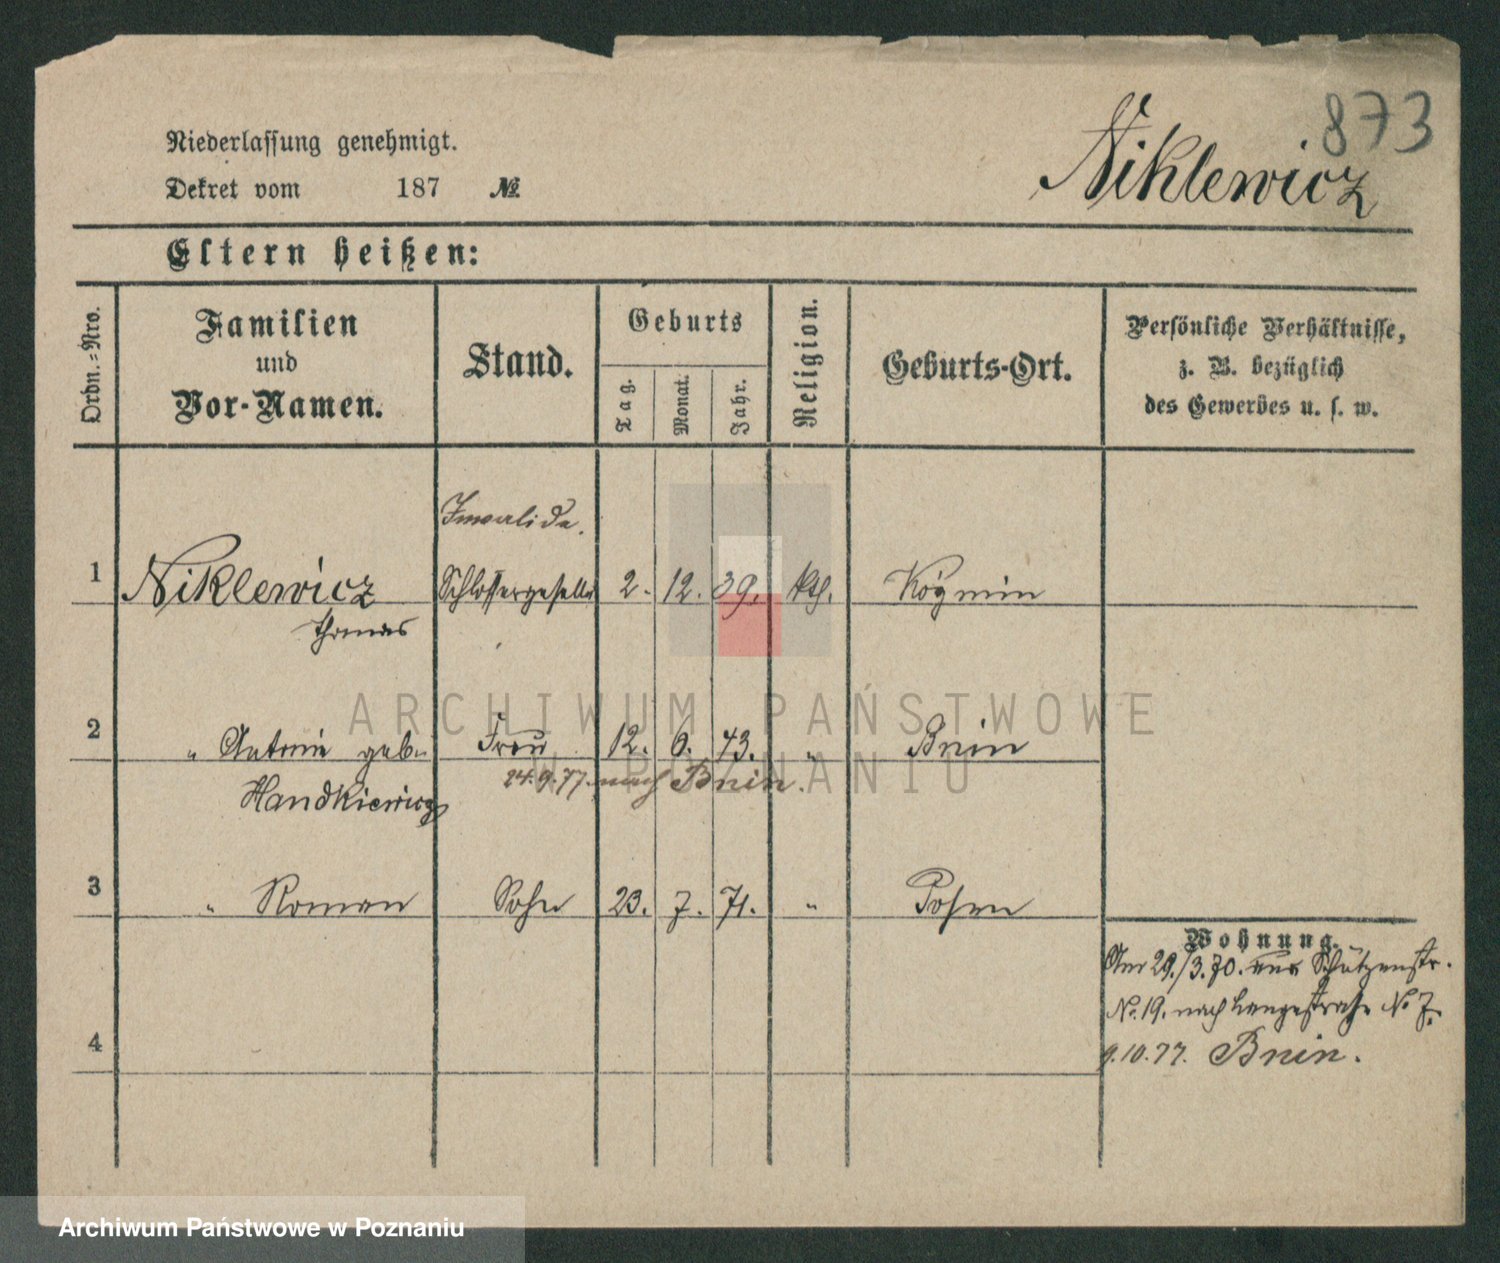 873
Niklewicz
Niederlassung genehmigt.
Dekret vom 187 №
Eltern heißen:
Ordn.=Nro.
Familien
und
Vor-Namen.
Stand.
Geburts
Tag.
Monat.
Jahr.
Religion.
Geburts-Ort.
Persönliche Verhältnisse,
z. B. bezüglich
des Gewerbes u. s. w.
Invalide.
1 Niklewicz Schlossergeselle 2. 12. 39. kth.
Thomas
2 " Antonie geb. Frau 12. 6. 43. " Bnin
24.9.77. nach Bnin.
Handkiewicz
3 " Roman Sohn 23. 7. 71. " Posen
Wohnung.
Am 29./3.70. aus Schützenstr.
No. 19. nach Langestraße No 7.
4
9.10.77. Bnin.
ARCHIWUM PAŃSTWOWE
W POZNANIU
Archiwum Państwowe w Poznaniu